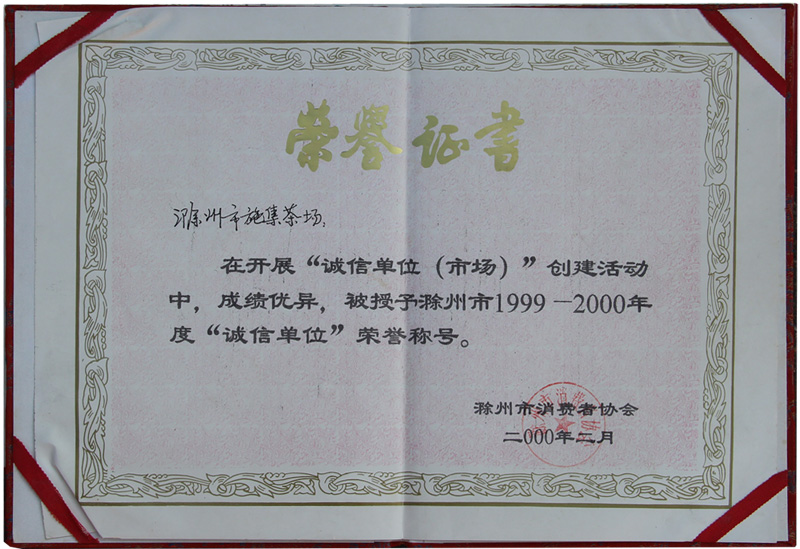 荣誉证书
滁州市施集茶场:
在开展“诚信单位(市场)”创建活动
中,成绩优异,被授予滁州市1999—2000年
度“诚信单位”荣誉称号。
滁州市消费者协会
二000年二月